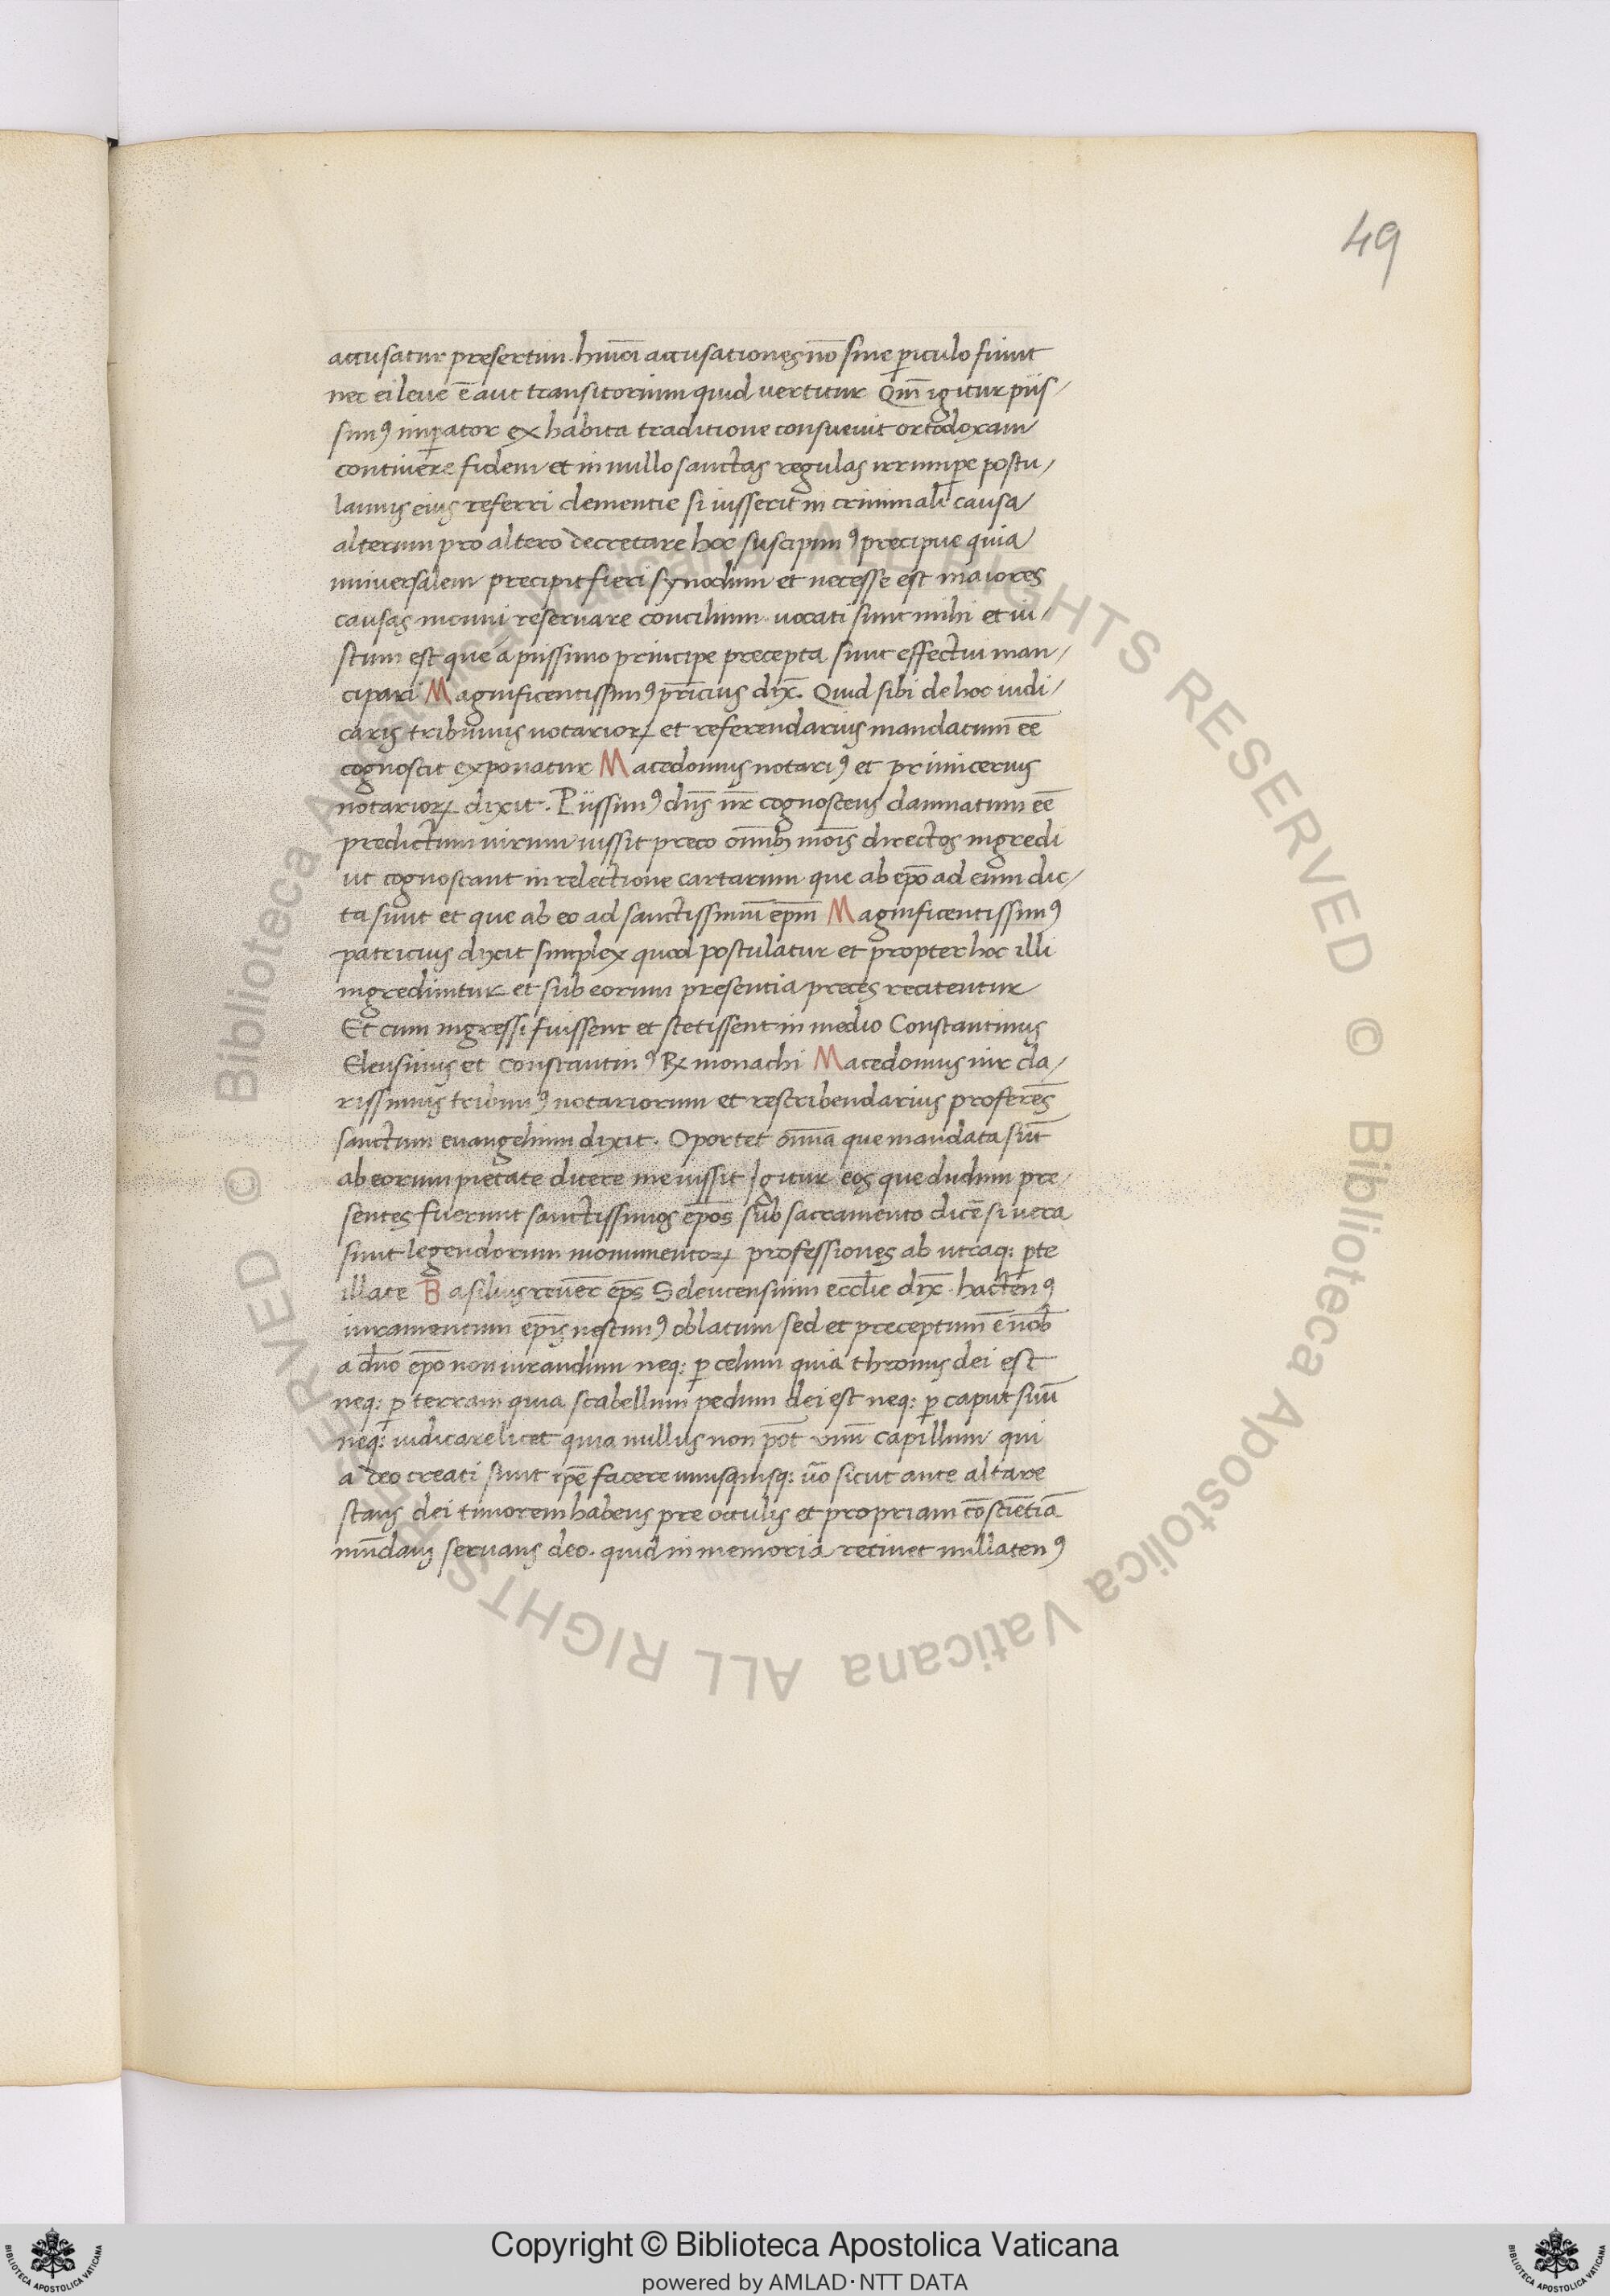 49
accusatur presertim. hm̄oi accusationes nō sine ꝑiculo fiunt
nec ei leue ē aut transitorium quid vertitur Qm̄ igitur piis-
simꝰ imꝑator ex habita traditione consuevit ortodoxam
continere fidem et in nullo sanctas regulas irrumpe postu-
lamus eius referri clementie si iusserit in criminali causa
alterum pro altero decretare hoc suscipimꝰ precipue quia
universalem precipit fieri synodum et necesse est maiores
causas incumi reservare concilium. vocati sunt mihi et iu-
stum est que a piissimo principe precepta sunt effectui man-
cipari Magnificentissimꝰ pr̄icius dix̄. Quid sibi de hoc iudi-
caris tribunus notarioꝝ et referendarius mandatum eē
cognoscit exponatur Macedonius notariꝰ et primicerius
notarioꝝ dixit. Piissimꝰ dn̄s nr̄ cognoscens damnatum eē
predictum virum iussit preco om̄ib; mōis directos ingredi
ut cognoscant in relectione cartarum que ab ep̄o ad eum dic-
ta sunt et que ab eo ad sanctissimū ep̄m Magnificentissimꝰ
patricius dixit simplex quod postulatur et propter hoc illi
ingrediuntur et sub eorum presentia preces recitentur
Et cum ingressi fuissent et stetissent in medio Constantinus
Eleusinius et Constantinꝰ Rx monachi Macedonius vir cla-
rissimus tribunꝰ notariorum et rescribendarius proferēs
sanctum evangelium dixit. Oportet om̄ia que mandata sūt
ab eorum pietate dicere me iussit Igitur eos que dudum pre-
sentes fuerunt sanctissimos ep̄os sub sacramento dicē si vera
sunt legendorum monumentoꝝ professiones ab utraq: ꝑte
illate Basilius reverē ep̄s Seleucensium eccl̄ie dix̄. hactenꝰ
iuramentum ep̄is nescimꝰ oblatum sed et preceptum ē nob̄
a dn̄o ep̄o non iurandum neq: ꝑ celum quia thronus dei est
neq: ꝑ terram quia scabellum pedum dei est neq: ꝑ caput suū
neq: iudicare licet quia nullus non pōt unū capillum qui
a deo creati sunt ip̄e facere unusquisq: v̄o sicut ante altare
stans dei timorem habens pre oculis et propriam cōsciētiā
mūdam servans deo. quid in memoria retinet nullatenꝰ
Copyright © Biblioteca Apostolica Vaticana
powered by AMLAD·NTT DATA